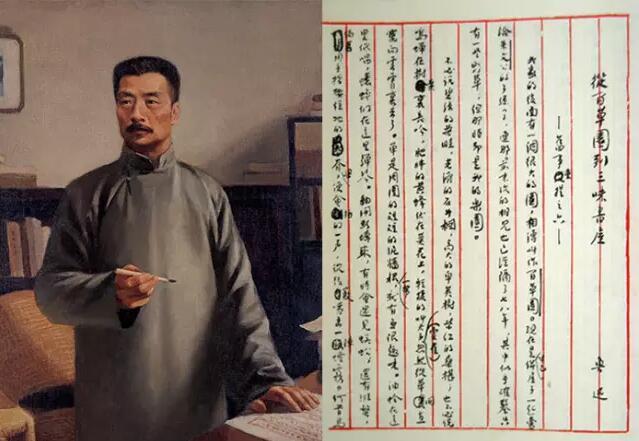 從百草園到三味書屋
——舊事重提之六——
魯迅
我家的後面有一個很大的園,相傳叫作百草園。現在是早已並屋子一起賣
給朱文公的子孫了,連那最末次的相見也已經隔了七八年,其中似乎確鑿只
有一些野草,但那時卻是我的樂園。
不必說碧綠的菜畦,光滑的石井欄,高大的皂莢樹,紫紅的桑椹;也不必說
鳴蟬在樹葉裏長吟,肥胖的黃蜂伏在菜花上,輕捷的叫天子(雲雀)忽然從草間直
竄向雲霄裏去了。單是周圍的短短的泥牆根一帶,就有無限趣味。油蛉在這
里低唱,蟋蟀們在這里彈琴。翻開斷磚來,有時會遇見蜈蚣;還有斑蝥,
倘若用手指按住牠的脊梁,便會拍的一聲,從後竅噴出一陣煙霧。何首烏